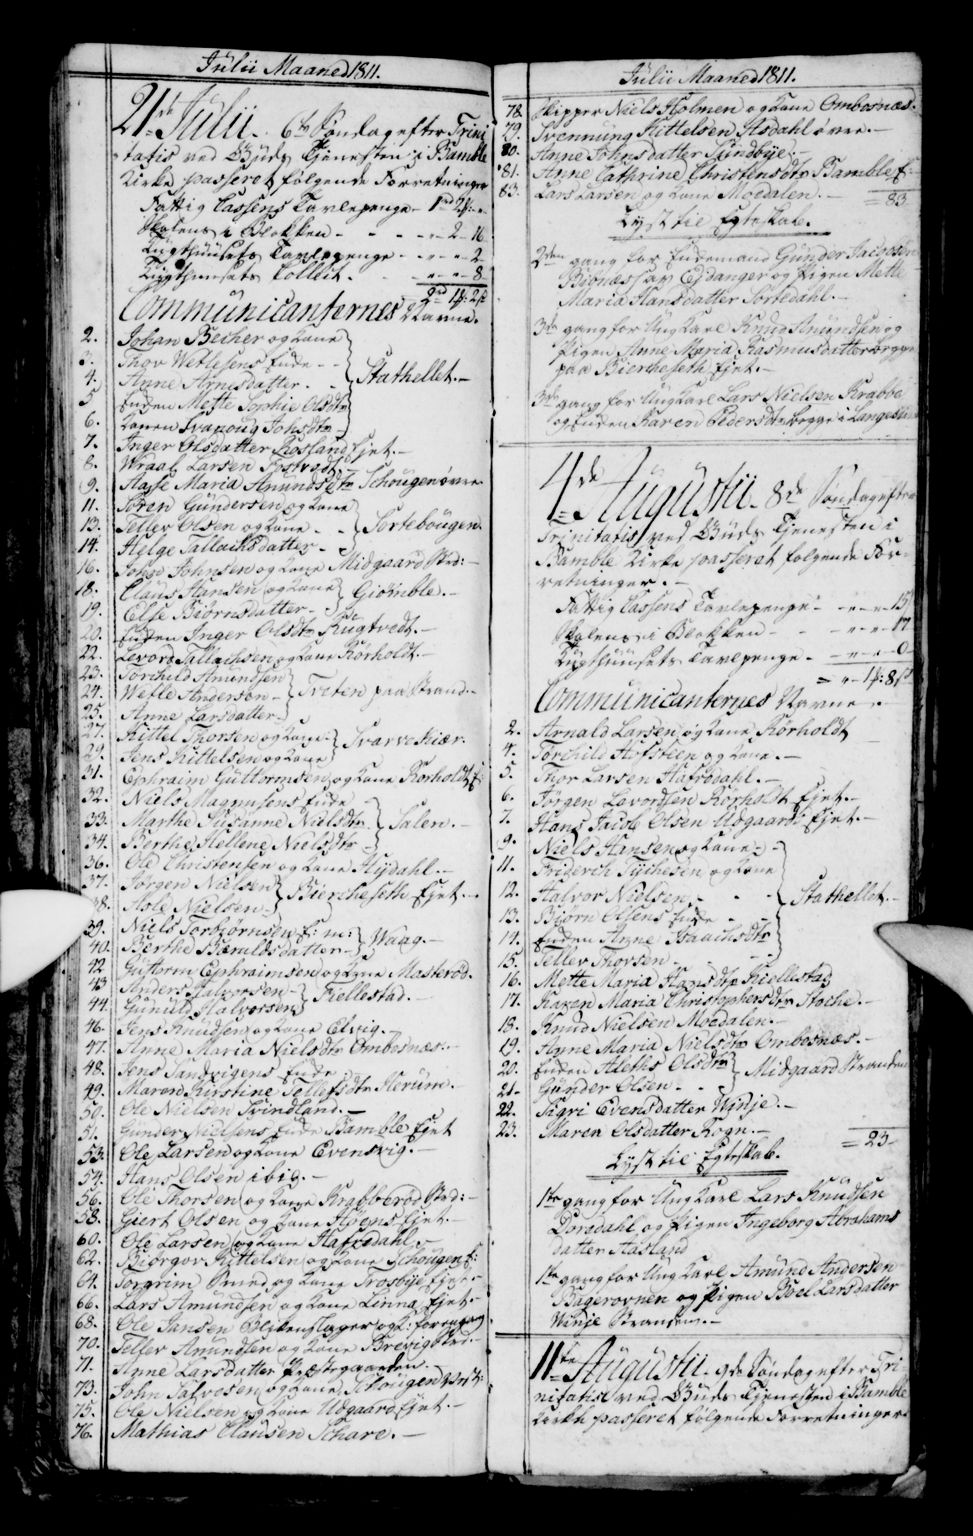 Julii Maaned 1811.
21de Julii. 6te Søndag efter Trini
tatis ved Guds Tjenesten i Bamble
Kirke passeret følgende Forretninger
Fattig Cassens Tavlepenge
Skolens i Blokken - - - 2 - 16
Tugthuusets Tavlepenge - - - 2
Tugthuusets Collect. - - - 8
Communicanternes Navne.
2. Johan Becher og Kone
3. Thor Weblesens Enke - -
4. Anne Arnesdatter. - - Stathellet. -
5 Enken Mette Sophie Olsdtr
6. Konen Svanoug Johsdtr
7. Inger Olsdatter Rosland Ejet. -
8. Wraal Larsen Tostvedt. -
9. Aasse Maria Amundsdtr Schougen øvre
11. Søren Gundersen og Kone
13. Teller Olsen og Kone - - Sortebougen.
14. Helge Tallachsdatter -
16. John Johnsen og Kone Midgaard Strd: -
18. Claus Hansen og Kone Giømble. -
19. Else Biørnsdatter -
20. Enken Inger Olsdtr Rugtvedt. -
22. Levord Tallachsen og Kone Rørholdt. -
23. Torchild Amundsen
24. Welle Andersen - Triten paa Strand. -
25. Anne Larsdatter
27. Kittel Thorsen og Kone - Svarvekiær.
29. Jens Kittelsen og Kone
31. Ephraim Guttormsen og Kone Rørholdt E
32. Niels Magnusens Enke
33. Marthe Susanne Nielsdtr Salen. -
34. Berthe Hellene Nielsdtr
36. Ole Christensen og Kone Hydahl. -
37. Jørgen Nielsen Biercheseth Ejet. -
38. Aole Nielsen
39. Niels Torbiørnsen E: m: Waag. -
40. Berthe Haraldsdatter -
42 Guttorm Ephraimsen og Kone Masterød.
43 Anders Halvorsen - Fiellestad. -
44. Gunuld Halvorsen
46. Jens Knudsen og Kone Elvig. -
47. Anne Maria Nielsdtr Ombosnæs. -
48. Jens Sandvigens Enke
49. Maren Kirstine Tellefsdtr Herum. -
50. Ole Nielsen Svindland. -
51. Gunder Nielsens Enke Bamble Ejet
53. Ole Larsen og Kone Evensvig. -
54. Hans Olsen ibid. -
56. Ole Thorsen og Kone Krabberød Strd: -
58. Giert Olsen og Kone Ejet. -
60. Ole Larsen og Kone Hafsdahl. -
62. Biørgor Kittelsen og Kone Schougen E:
64. Torgrim Smed og Kone Trosbye Ejet -
66. Lars Amundsen og Kone Linna Ejet. -
68. Ole Jansen
70. Teller Amundsen og Kone Brevig Strd. -
71. Anne Larsdatter Præstegaarden -
73. John Salvesen og Kone Schougen
75. Ole Nielsen og Kone Udgaard Ejet. -
76. Mathias Clausen Schare. -
Julii Maaned 1811.
78. Skipper Niels Holmen og Kone Ombosnæs.
79. Svennung Kittelsen Asdahl øvre. -
80. Anne Johnsdatter Sundbye. -
81. Anne Cathrine Christensdtr Bamble E:
83. Lars Larsen og Kone Moedalen. - = 83
Lyst til Egteskab.
2den gang for Enkemand Gunder Jacobsen
Biønnes af Eidanger og Pigen Mette
Maria Hansdatter Sortedahl. -
3de gang for Ung Karl Knud Amundsen og
Pigen Anne Maria Rasmusdatter begge
paa Biercheseth Ejet. -
3de gang for Ung Karl Lars Nielsen Krabbe
og Enken Karen Pedersdtr begge i Langesund
4de Augustii. 8de Søndag efter
Trinitatis ved Guds Tjenesten i
Bamble Kirke passeret følgende For-
retninger. -
Fattig Cassens Tavlepenge - - - 15
Skolens i Blokken - - - 17
Tugthuusets Tavlepenge. - - - 0
Communicanternes Navne.
2. Arnold Larsen og Kone Rørholdt
4. Torchild Hafstien og Kone. -
5. Thor Larsen Hafsdahl. -
6. Jørgen Levordsen Rørholt Ejet. -
7. Hans Jacob Olsen Udgaard Ejet. -
9. Niels Hansen og Kone -
11. Friderich Tychesen og Kone
12. Halvor Nielsen. - - Stathellet. -
13. Biørn Olsens Enke - -
14. Enken Anne Isaachsdtr
15. Teller Thorsen - -
16. Mette Maria Hansdtr Kiellestad
17. Karen Maria Christophersdtr Stoche. -
18. Knud Nielsen Moedalen. -
19. Anne Maria Nielsdtr Ombosnæs. -
20. Enken Aleths Olsdtr Midgaard Stranden
21. Gunder Olsen - -
22. Sigri Evensdatter Winje. -
23. Maren Olsdatter Rogn. - = 23
Lyst til Egteskab.
1te gang for Ung Karl Lars Knudsen
Dørdahl og Pigen Ingeborg Abrahams
datter Aasland
1te gang for Ung Karl Amund Andersen
Bagerovnen og Pigen Boel Larsdatter
Winje Stranden. -
11te Augustii. 9de Søndag efter Tri
nitatis ved Guds Tjenesten i Bamble
Kirke passeret følgende Forretninger.